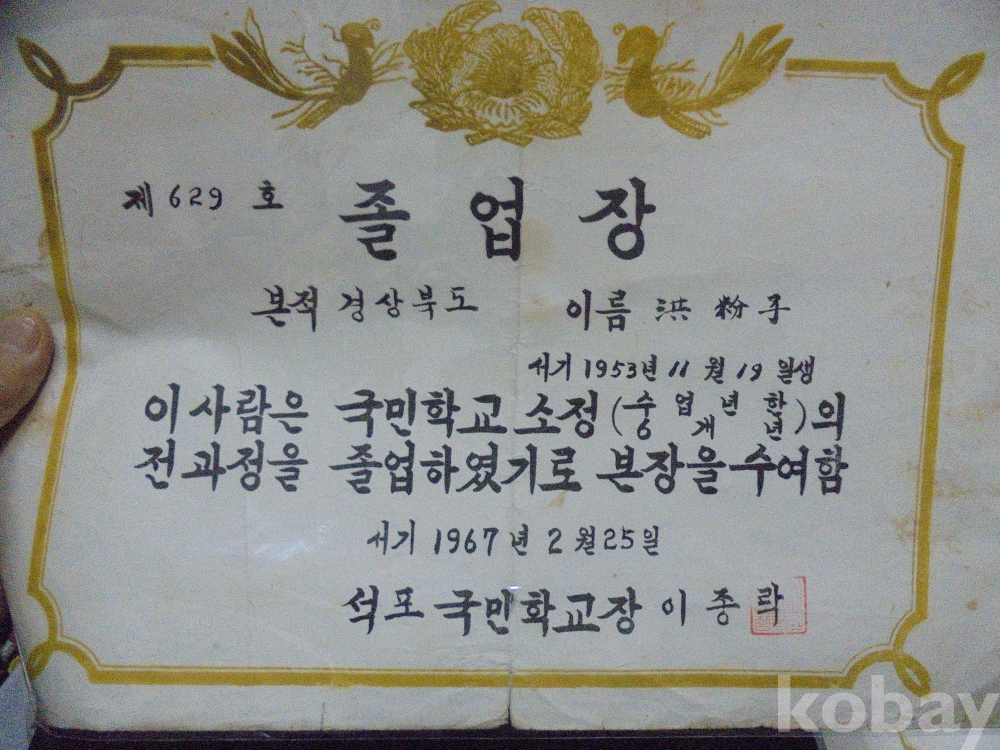 제 629 호 졸업장
본적 경상북도 이름 洪粉子
서기 1953년 11월 19일생
이 사람은 국민학교 소정 (수업년한
개년) 의
전과정을 졸업하였기로 본장을 수여함
서기 1967년 2월 25일
석포 국민학교장 이종락
kobay